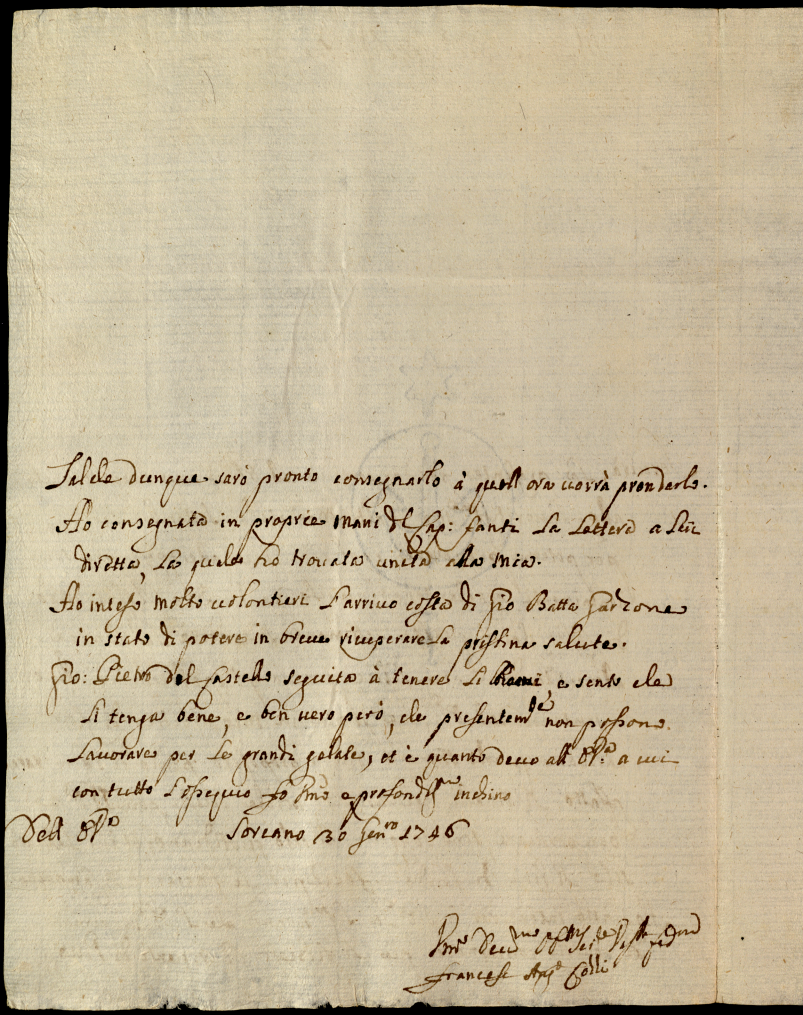 Talche dunque sarò pronto consegnarlo à quell ora vorrà prenderlo.
Ho consegnata in proprie mani del Cap: Fanti La Lettera a Lui
diretta, La quale hò trovata unita alla mia.
Ho inteso molto volontieri L'arrivo costà di Gio Batta Garzone
in stato di potere in breve ricuperare La pristina salute.
Gio: Pietro del Castello seguita à tenere Li Rami, e sento che
Li tenga bene, e ben vero però, che presentemte non possono
Lavorare per Le grandi gelate, et è quanto devo all' a cui
con tutto L'ossequio fò e profondmo inchino
Dell Soreano 30 Genro 1746
Francesco Ango Colli